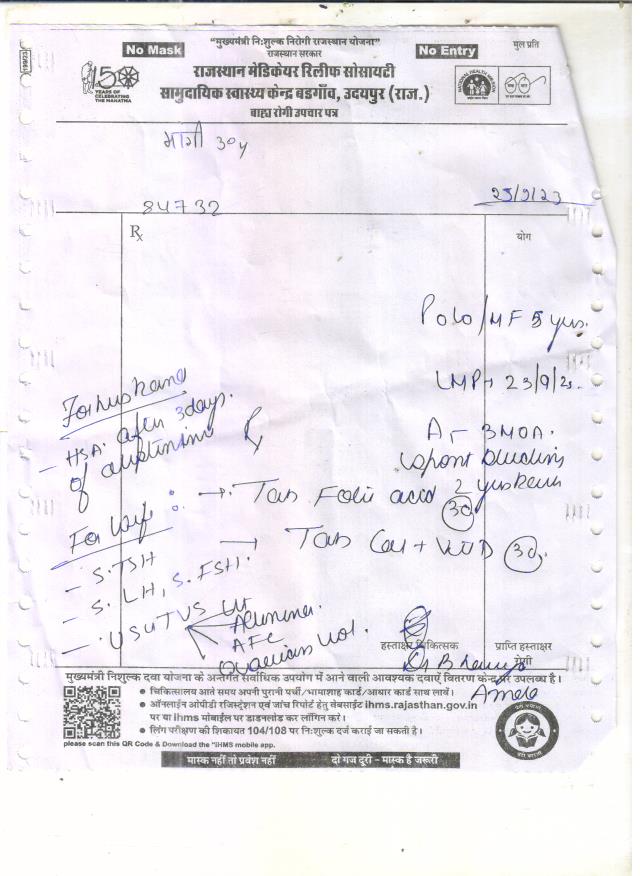 No Mask
"मुख्यमंत्री नि:शुल्क निरोगी राजस्थान योजना"
राजस्थान सरकार
No Entry
मुल प्रति
150
YEARS OF
CELEBRATING
THE MAHATMA
राजस्थान मेडिकेयर रिलीफ सोसायटी
सामुदायिक स्वास्थ्य केन्द्र बडगाँव, उदयपुर (राज.)
बाह्य रोगी उपचार पत्र
NATIONAL HEALTH MISSION
30y
84732
25/9/23
Rx
योग
PoLo/MF 5 yrs.
LMP 23/9/23.
For husband
- HSA after 3 days.
of abstinence
A- 3MOA.
spont
2 yrs back
→ Tab Folic acid
30
For Wife :
→ Tab Cal + Vit D 30
- S.TSH
- S. LH, S. FSH.
- USG TVS Ut
AFC
Ovarian vol.
हस्ताक्षर चिकित्सक
प्राप्ति हस्ताक्षर
रोगी
मुख्यमंत्री निशुल्क दवा योजना के अन्तर्गत सर्वाधिक उपयोग में आने वाली आवश्यक दवाऐं वितरण केन्द्र पर उपलब्ध है।
• चिकित्सालय आते समय अपनी पुरानी पर्ची/भामाशाह कार्ड/आधार कार्ड साथ लावें।
• ऑनलाईन ओपीडी रजिस्ट्रेशन एवं जांच रिपोर्ट हेतु वेबसाईट ihms.rajasthan.gov.in
पर या ihms मोबाईल पर डाउनलोड कर लॉगिन करें।
• लिंग परीक्षण की शिकायत 104/108 पर नि:शुल्क दर्ज कराई जा सकती है।
please scan this QR Code & Download the "iHMS mobile app.
मास्क नहीं तो प्रवेश नहीं
दो गज दूरी - मास्क है जरूरी